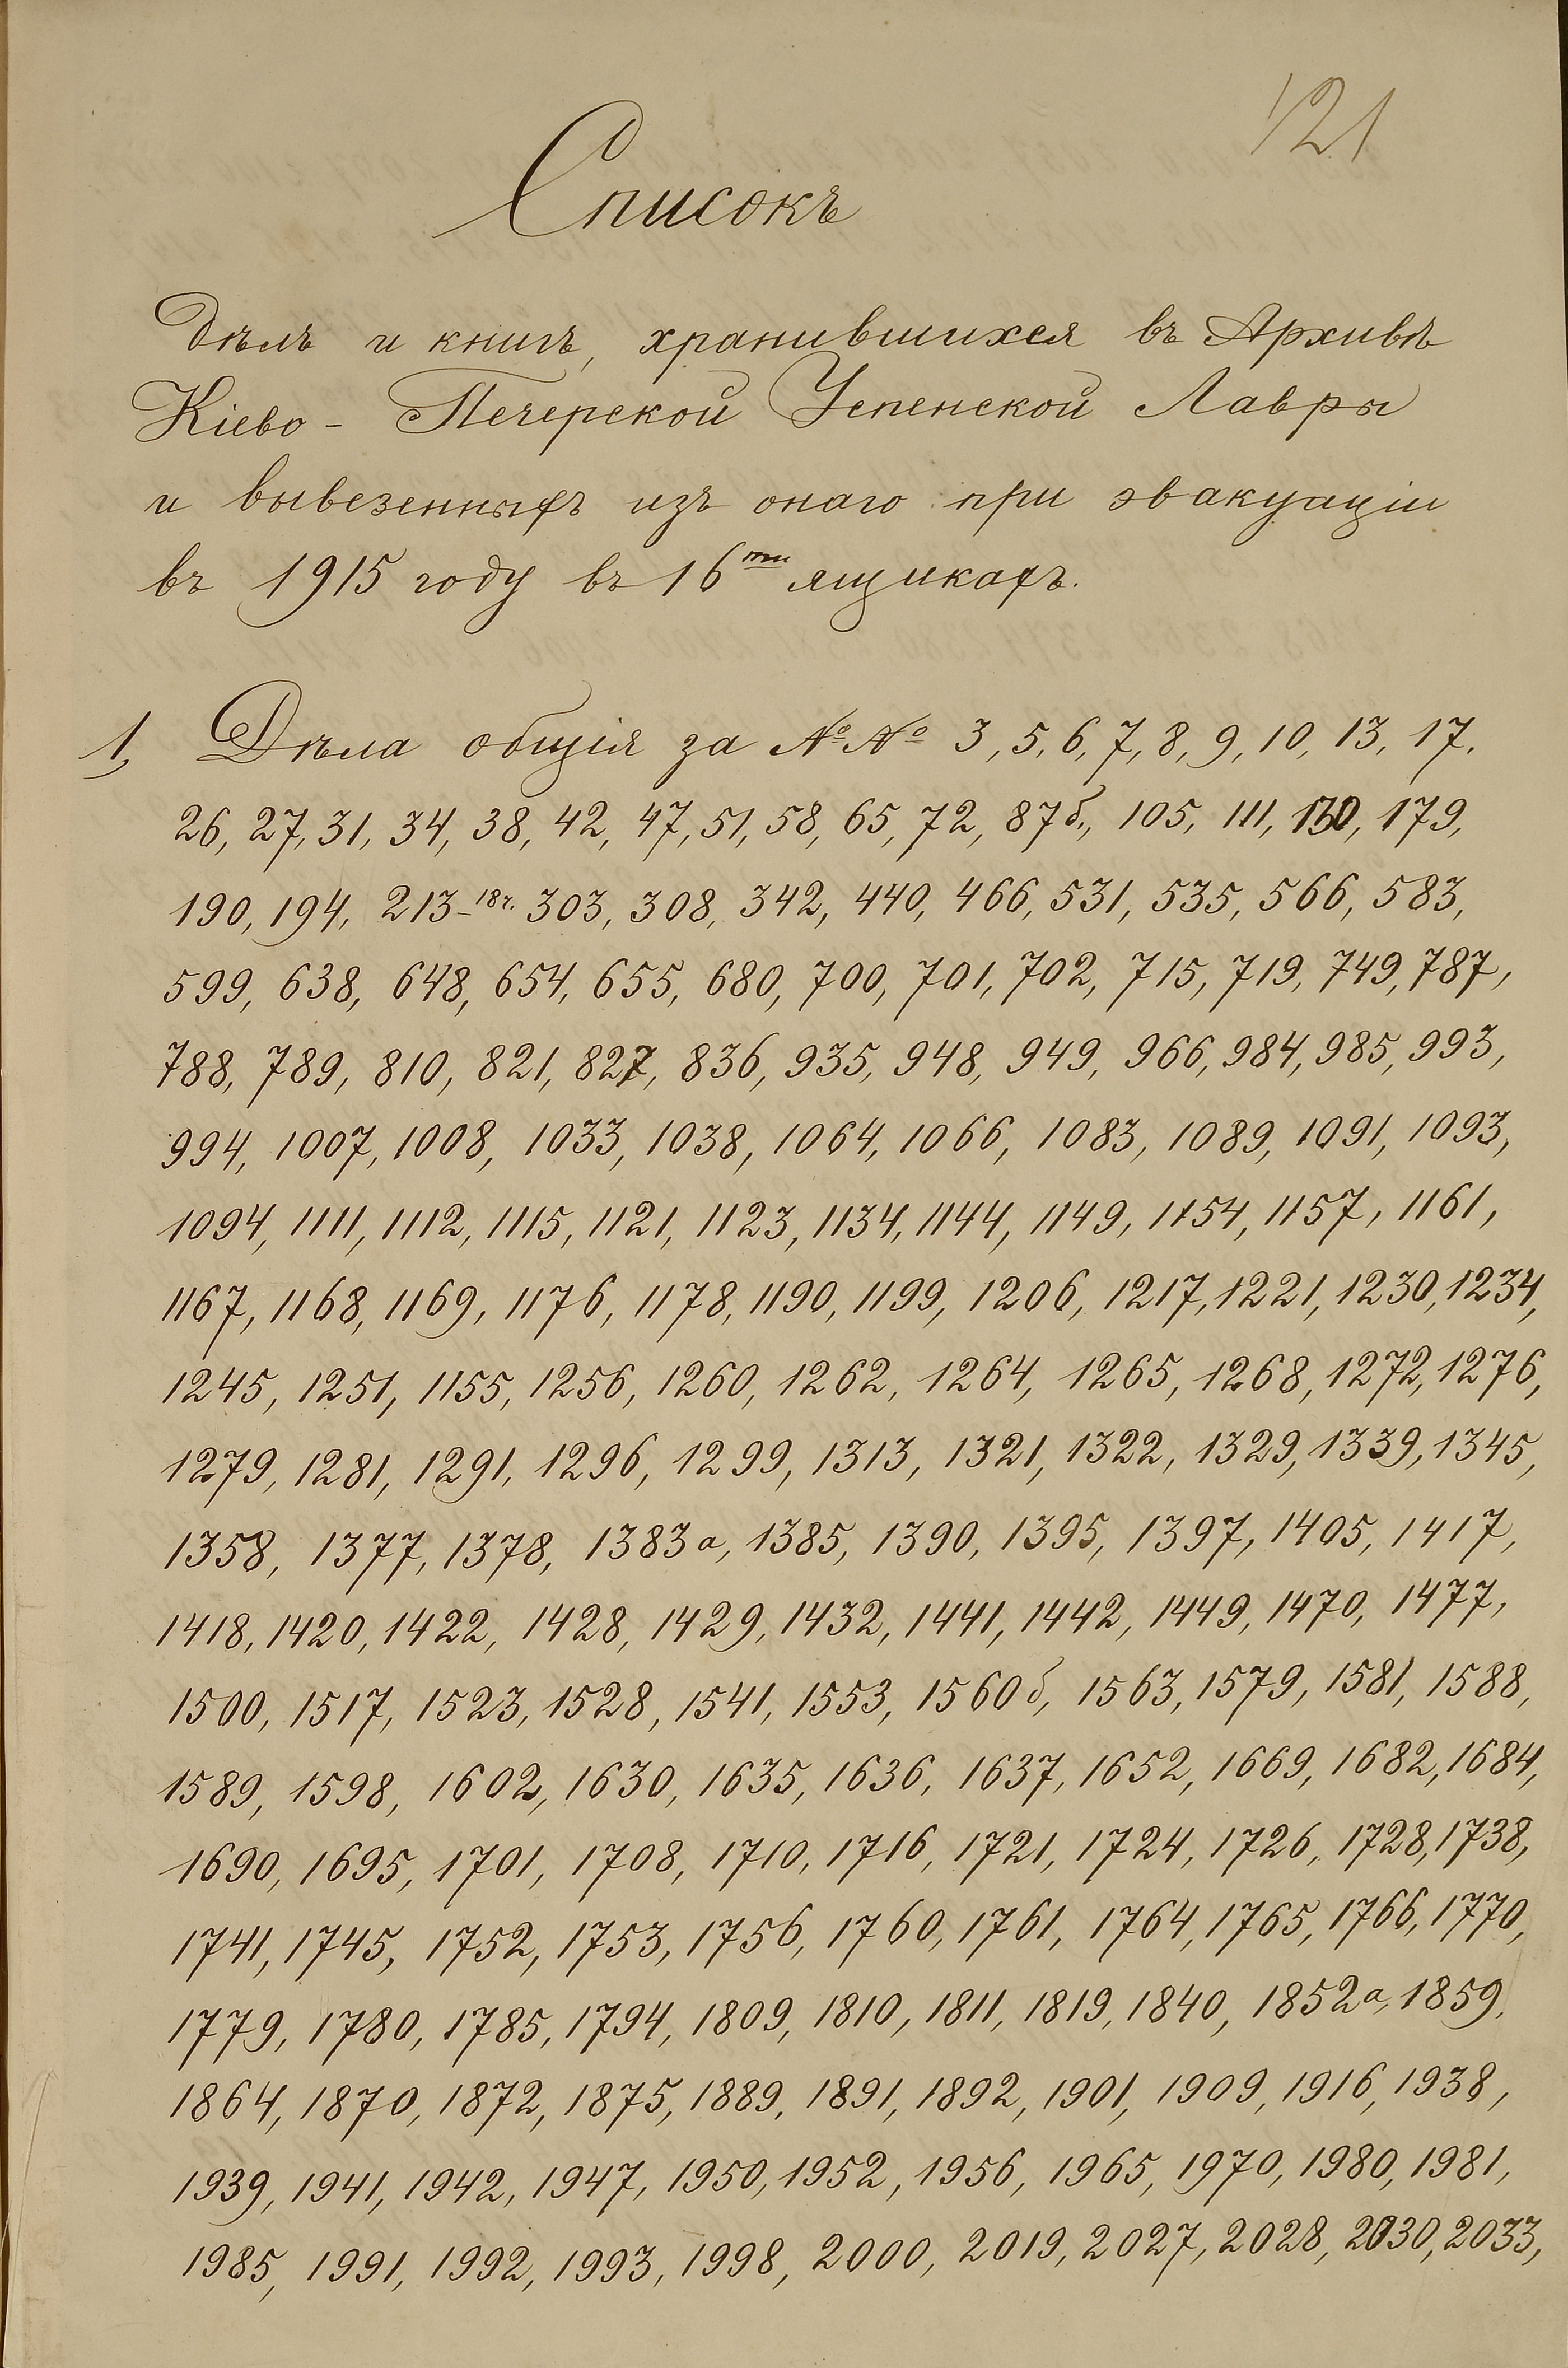 121
Списокъ
дѣлъ и книгъ, хранившихся въ Архивѣ
Кіево - Печерской Успенской Лавры
и вывезенныхъ изъ онаго при эвакуаціи
въ 1915 году въ 16ти ящикахъ.
1, Дѣла общія за №№ 3, 5, 6, 7, 8, 9, 10, 13, 17.
26, 27, 31, 34, 38, 42, 47, 51, 58, 65, 72, 87б., 105, 111, 130, 179,
190, 194, 213-18ч. 303, 308, 342, 440, 466, 531, 535, 566, 583,
599, 638, 648, 654, 655, 680, 700, 701, 702, 715, 719, 749, 787,
788, 789, 810, 821, 827, 836, 935, 948, 949, 966, 984, 985, 993,
994, 1007, 1008, 1033, 1038, 1064, 1066, 1083, 1089, 1091, 1093,
1094, 1111, 1112, 1115, 1121, 1123, 1134, 1144, 1149, 1154, 1157, 1161,
1167, 1168, 1169, 1176, 1178, 1190, 1199, 1206, 1217, 1221, 1230, 1234,
1245, 1251, 1155, 1256, 1260, 1262, 1264, 1265, 1268, 1272, 1276,
1279, 1281, 1291, 1296, 1299, 1313, 1321, 1322, 1329, 1339, 1345,
1358, 1377, 1378, 1383а, 1385, 1390, 1395, 1397, 1405, 1417,
1418, 1420, 1422, 1428, 1429, 1432, 1441, 1442, 1449, 1470, 1477,
1500, 1517, 1523, 1528, 1541, 1553, 1560б, 1563, 1579, 1581, 1588,
1589, 1598, 1602, 1630, 1635, 1636, 1637, 1652, 1669, 1682, 1684,
1690, 1695, 1701, 1708, 1710, 1716, 1721, 1724, 1726, 1728, 1738,
1741, 1745, 1752, 1753, 1756, 1760, 1761, 1764, 1765, 1766, 1770,
1779, 1780, 1785, 1794, 1809, 1810, 1811, 1819, 1840, 1852а, 1859.
1864, 1870, 1872, 1875, 1889, 1891, 1892, 1901, 1909, 1916, 1938,
1939, 1941, 1942, 1947, 1950, 1952, 1956, 1965, 1970, 1980, 1981,
1985, 1991, 1992, 1993, 1998, 2000, 2019, 2027, 2028, 2030, 2033,